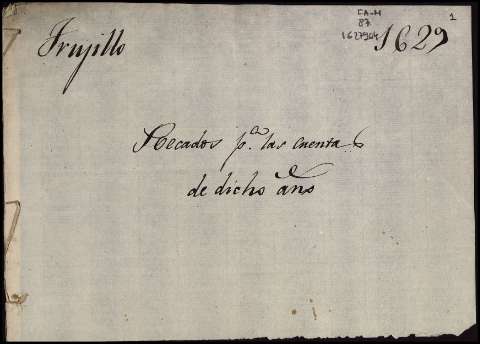 Trujillo
CA-M
87
1627904
1629
1
Recados p.ª las cuentas
de dicho año